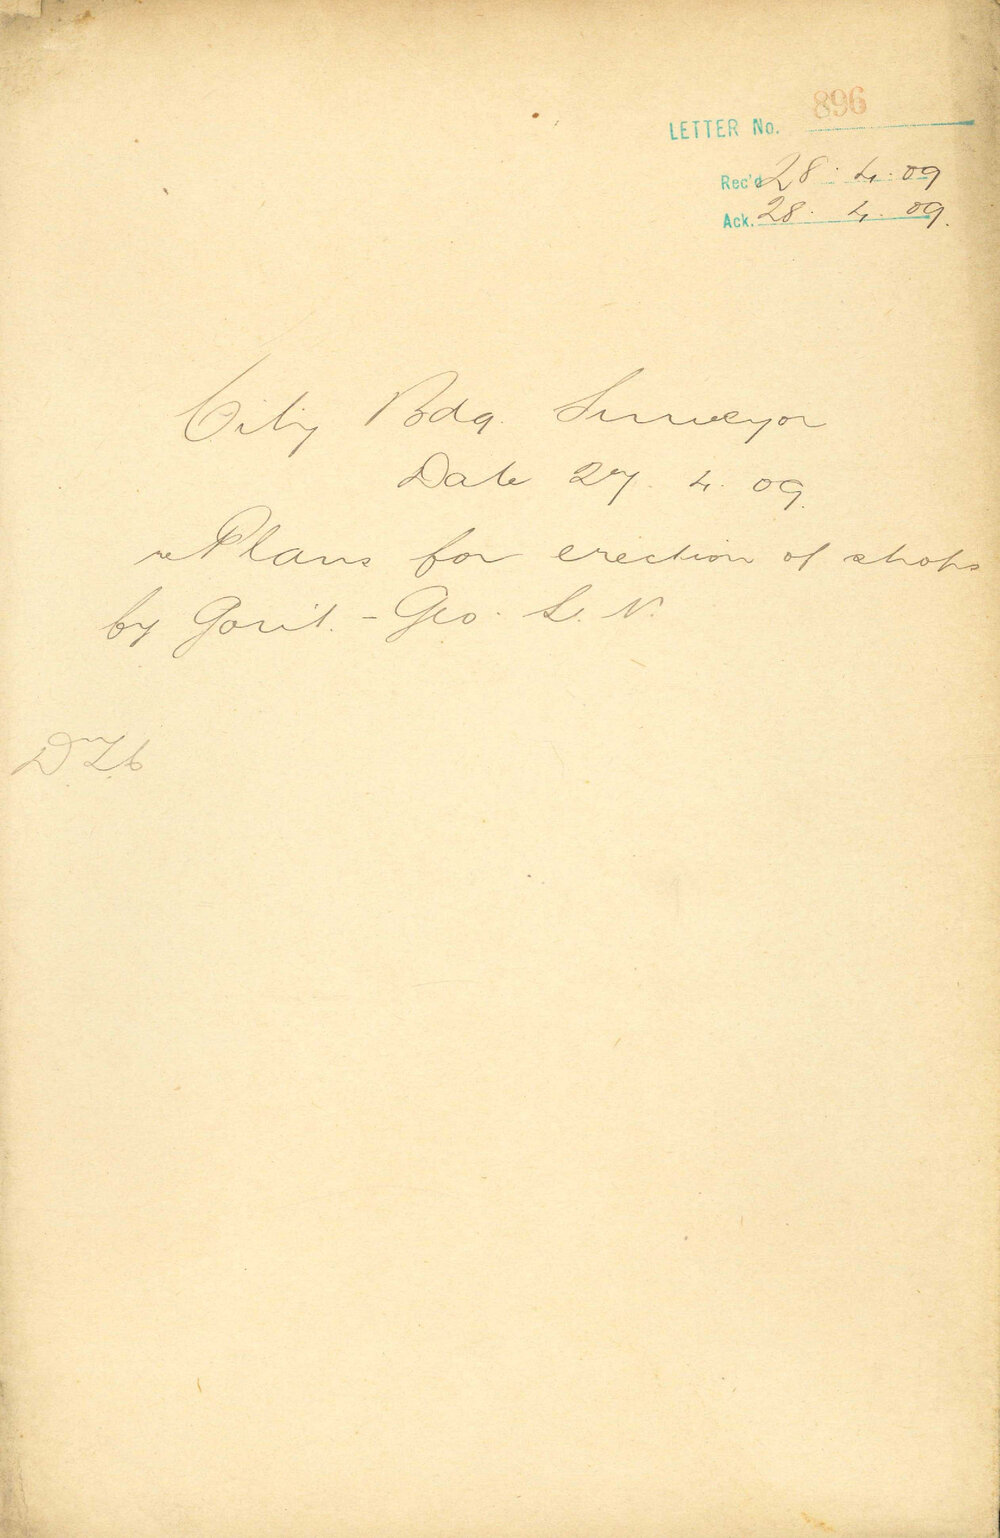 LETTER No. 896
Rec'd 28. 4. 09
Ack. 28. 4. 09.
City Bdg. Surveyor
Date 27. 4. 09.
re Plans for erection of shops
by Govt. - Geo. St. N.